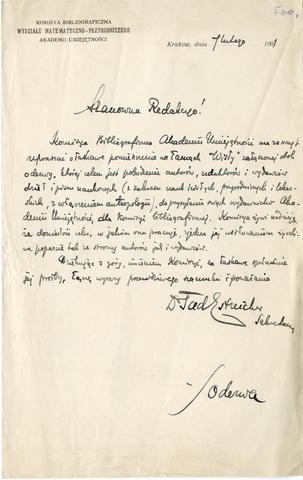 500,
KOMISYA BIBLIOGRAFICZNA
WYDZIAŁU MATEMATYCZNO-PRZYRODNICZEGO
AKADEMII UMIEJĘTNOŚCI
Kraków, dnia 7 lutego 1901
Szanowna Redakcyo!
Komisya Bibliograficzna Akademii Umiejętności ma zaszczyt
uprosić o łaskawe pomieszczenie na łamach "Wisły" załączonej dołem
odezwy, której celem jest pobudzenie autorów, redaktorów i wydawców
dzieł i pism naukowych (z zakresu nauk ścisłych, przyrodniczych i lekar-
skich, z włączeniem antropologii, do przysyłania swych wydawnictw Aka-
demii Umiejętności, dla Komisyi bibliograficznej. Komisya żywi nadzieję,
że doniosłość celu, w jakim ona pracuje, zjedna jej usiłowaniom życzli-
we poparcie tak ze strony autorów jak i wydawców.
Dziękując z góry, imieniem Komisyi, za łaskawe spełnienie
jej prośby, łączę wyrazy prawdziwego szacunku i poważania
Dr Tad Estreicher
Sekretarz
Odezwa